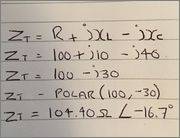 Z_T = R + jX_L - jX_C
Z_T = 100 + j10 - j40
Z_T = 100 - j30
Z_T - POLAR (100, -30)
Z_T = 104.40 Ω ∠ -16.7°